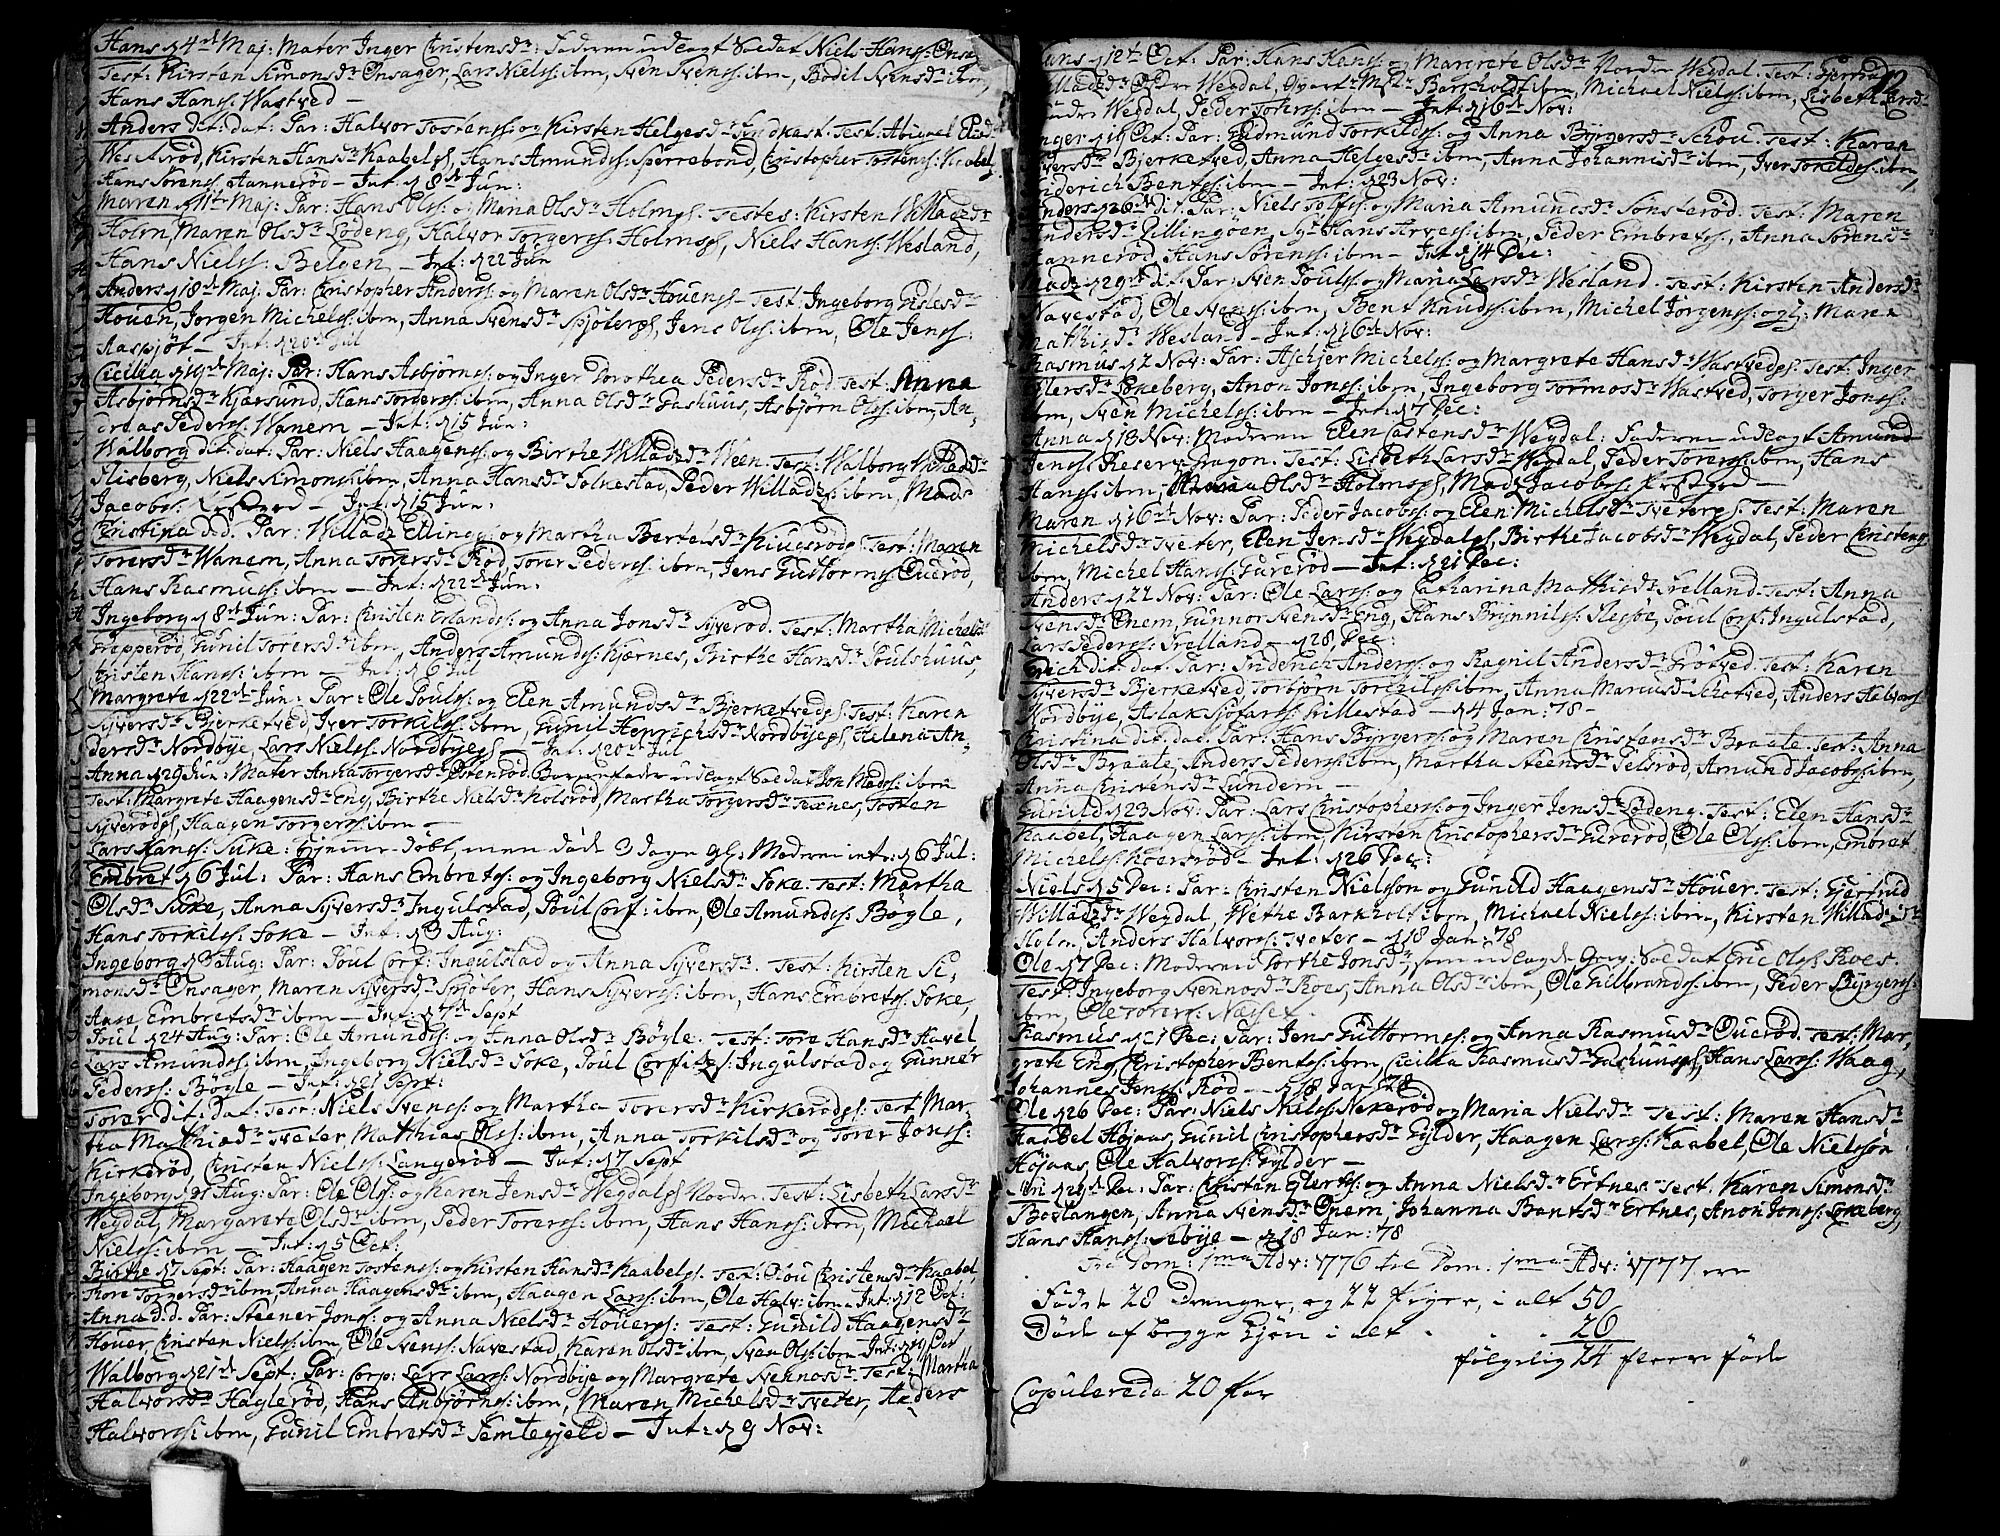 Hans d. 4de Maj: Mater Inger Christensdr: Faderen udlagt Soldat Niels Hanss: Onsa
Test: Kirsten Simonsdr Onsager, Lars Nielss: ibm, Sven Svenss: ibm, Bodil Svensdr ibm,
Hans Hanss: Wastved –
Anders dit: dat: Par: Halvor Tostenss: og Kirsten Helgesdr Test: Abigael
Kirsten Hansdr Kaabelgs, Hans Amundss: Sperrebond, Christopher Tostenss: Kaabel,
Hans Sørenss: Aannerød – Int: d. 8de Jun:
Maren d. 11te Maj: Par: Hans Olss: og Maria Olsdr Holmgs. Testes: Kirsten Willadzdr
Holm, Maren Olsdr Lodeng, Halvor Torgerss: Holmgs, Niels Hanss: Wesland,
Hans Nielss: Belgen – Int: d. 22 Jun
Anders d. 18de Maj: Par: Christopher Anderss: og Maren Olsdr Houengs – Test: Ingeborg
Houen, Jørgen Michelss: ibm, Anna Svensdr Spjötergs, Jens Olss: ibm, Ole Jenss:
Aaspjøt – Int: d. 20de Jul
Cicilia d. 19de Maj: Par: Hans Asbjørnss: og Inger Dorothea Pedersdr Rød. Test: Anna
Asbjørnsdr Kjærsund, Hans Torgerss: ibm, Anna Olsdr Gashuus, Asbjørn Olss: ibm, An-
dreas Pederss: Wanem – Int: d. 15 Jun:
Walborg dit: dat: Par: Niels Haagenss: og Birthe Willadzdr Ween. Test: Walborg
Slisberg, Niels Simonss: ibm, Anna Hansdr Folkestad, Peder Willadzs: ibm, Mads
Jacobs: – Int: d. 15 Jun:
Christina d.d. Par: Willadz Ellingss: og Martha Bertelsdr Kiugsrødgs: Test: Maren
Torersdr Wanem, Anna Torersdr Rød, Torer Pederss: ibm, Jens Guttormss: Ouerød,
Hans Rasmuss: ibm – Int: d. 22de Jun:
Ingeborg d. 8de Jun: Par: Christen Erlandss: og Anna Jonsdr Syverød. Test: Martha Michelsdr
Grepperød, Gunil Torersdr ibm, Anders Amundss: Kjærnes, Birthe Hansdr Poulshuus,
Christen Hanss: ibm – Int: d. 6 Jul
Margrete d. 22de Jun: Par: Ole Poulss: og Elen Amundsdr Bjerketvedgs. Test: Karen
Syversdr Bjerketved, Iver Torkilss: ibm, Gunil Henrichsdr Nordbyegs, Helena An-
dersdr Nordbye, Lars Nielss: Nordbyegs – Int: d. 20de Jul
Anna d. 29 Jun: Mater Anna Torgersdr Østenrød. Barnefader udlagt Soldat Jon Madss: ibm
Test: Margrete Haagensdr Eng, Birthe Nielsdr Kolsrød, Martha Torgersdr Texnes, Tosten
Syverødgs, Haagen Torgerss: ibm –
Lars Hanss: Suke: hjemme döbt, men døde 3 dage gl: Moderen intr: d. 6 Jul:
Embret d. 6 Jul: Par: Hans Embretss: og Ingeborg Nielsdr Soke. Test: Martha
Olsdr Suke, Anna Syversdr Ingulstad, Poul Corf: ibm, Ole Amundss: Bögle,
Hans Torkilss: Soke – Int: d. 3 Aug:
Ingeborg d. 3 Aug: Par: Poul Corf: Ingulstad og Anna Syversdr. Test: Kirsten Si-
monsdr Onsager, Maren Syversdr Spjöter, Hans Syverss: ibm, Hans Embretss: Soke
Aase Embretsdr ibm – Int: d. 7de Sept
Poul d. 24 Aug: Par: Ole Amundss: og Anna Olsdr Bögle. Test: Tore Hansdr Havel
Lars Amundss: ibm, Ingeborg Nielsdr Soke, Poul Corfitzs: Ingulstad og Gunner
Pederss: Bögle – Int: d. 21 Sept:
Torer dit: Dat: Test: Niels Svenss: og Martha Torersdr Kirkerødgs: Test: Mar-
tha Mathiædr Tveter, Mathias Olss: ibm, Anna Torkilsdr og Torer Jonss:
Kirkerød, Christen Nielss: Langerød – Int: d. 7 Sept
Ingeborg d. 31 Aug: Par: Ole Olss: og Karen Jensdr Wegdalgs Nordre. Test: Lisbeth Larsdr
Wegdal, Margarete Olsdr ibm, Peder Torerss: ibm, Hans Hanss: ibm, Michael
Nielss: ibm – Int: d. 5 Oct:
Birthe d. 7 Sept: Par: Haagen Tostenss: og Kirsten Hansdr Kaabelgs. Test: Olou Christensdr Kaabel,
Tore Torgersdr ibm, Anna Haagensdr ibm, Haagen Larss: ibm, Ole Halv: ibm – Int: d. 12 Oct:
Anna d.d. Par: Steener Jonss: og Anna Nielsdr Houergs: Test: Gunild Haagensdr
Houer, Christen Nielss: ibm, Ole Svenss: Navestad, Karen Olsdr ibm, Sven Olss: ibm Int: d. Oct
Walborg d. 21de Sept: Par: Corp: Lars Larss: Nordbye og Margrete Svennosdr. Test: Martha
Halvorsdr Haglerød, Hans Anbjörns: ibm, Maren Michelsdr Tveter, Anders
Halvorss: ibm, Gunil Embretsdr Semtegjeld – Int: d. 9 Nov:
Hans d. 12te Oct: Par: Hans Hanss: og Margrete Olsdr Nordre Wegdal. Test: Gjertrud
Willadzdr Østre Wegdal, Qvartr Mstr Barcholdt ibm, Michael Nielss: ibm, Lisbeth Larsdr
Søndre Wegdal, Peder Torerss: ibm – Int: d. 16de Nov:
Inger d. Oct: Par: Gudmund Torkildss: og Anna Byrgersdr Schou. Test: Karen
Syversdr Bjerketved, Anna Helgesdr ibm, Anna Johannisdr ibm, Iver Torkildss: ibm
Friderich Bentss: ibm – Int: d. 23 Nov:
Anders d. 26de dit. Par: Niels Tolfss: og Maria Amundsdr Sonsterød. Test: Maren
Andersdr Gillingöen, Hans Arvess: ibm, Peder Embretss:, Anna Sørensdr
Aannerød, Hans Sørenss: ibm – Int: d. 14 Dec:
Madz d. 29de dit: Par: Sven Poulss: og Maria Larsdr Wesland. Test: Kirsten Andersdr
Navestad, Ole Svenss: ibm, Bent Knudss: ibm, Michel Jørgenss: og Maren
Mathisdr Wesland – Int: d. 16de Nov:
Rasmus d. 2 Nov: Par: Aschjer Michelss: og Margrete Hansdr Wastvedgs. Test: Inger
Eilersdr Lökeberg, Anon Jonss: ibm, Ingeborg Tormosdr Wastved, Torger Jonss:
ibm, Sven Michelss: ibm – Int: d. 7 Dec:
Anna d. 18 Nov: Moderen Elen Castensdr Wegdal: Faderen udlagt Amund
Jenss: Reserv Dragon. Test: Lisbeth Larsdr Wegdal, Peder Torerss: ibm, Hans
Hanss: ibm, Maria Olsdr Holmgs, Madz Jacobs: Prestgrd –
Maren d. 16de Nov: Par: Peder Jacobs: og Elen Michelsdr Tvetergs. Test: Maren
Michelsdr Tveter, Elen Jensdr Wegdalgs, Birthe Jacobsdr Wegdal, Peder Christens:
ibm, Michel Hanss: Gurerød – Int: d. 21 Dec:
Anders d. 22 Nov: Par: Ole Larss: og Catharina Mathisdr Frelland. Test: Anna
Svensdr Onem, Gunnor Svensdr Eng, Hans Brynnilss: Slesbø, Poul Corf: Ingulstad,
Lars Pederss: Frelland – d. 28 Dec:
Erich dit. dat. Par: Friderich Anderss: og Ragnil Andersdr Grötved. Test: Karen
Syversdr Bjerketved, Torbjörn Torchilss: ibm, Anna Mariusdr Schotved, Anders Halvorss:
Nordbye, Aslak Sjöfarss: Grillestad – d. 4 Jan: 78 –
Christina dit. dat. Par: Hans Byrgerss: og Maren Christensdr Braate. Test: Anna
Olsdr Braate, Anders Pederss: ibm, Martha Steensdr Telsrød, Amund Jacobs: ibm,
Anna Christensdr Lundern –
Gunild d. 23 Nov: Par: Lars Christopherss: og Inger Jensdr Lødeng. Test: Elen Hansdr
Kaabel, Haagen Larss: ibm, Kirsten Christophersdr Gurerød, Ole Olss: ibm, Embret
Michelss: Koersrød – Int: d. 26 Dec:
Niels d. 5 Dec: Par: Christen Nielsson og Gunild Haagensdr Houer. Test: Gjertrud
Willadzdr Wegdal, Wethe Barkholt ibm, Michael Nielss: ibm, Kirsten Willadzdr
Holm, Anders Halvorss: Tveter – d. 18 Jan: 78
Ole d. 7 Dec: Moderen Dorthe Jonsdr, som udlagde Gevorb: Soldat Eric Olss: Roes.
Test: Ingeborg Svennosdr Roes, Anna Olsdr ibm, Ole Gulbrandss: ibm, Peder Byrgerss:
ibm, Ole Torerss: Næset.
Rasmus d. 21 Dec: Par: Jens Guttormss: og Anna Rasmusdr Ouerød. Test: Mar-
grete Eng, Christopher Bentss: ibm, Cicilia Rasmusdr Gashuusgs, Hans Larss: Waag,
Johannes Jenss: Rød – d. 18 Jan: 78
Ole d. 26 Dec: Par: Niels Nielss: Nekerød og Maria Nielsdr Test: Maren Hansdr
Kaabel Höjaas, Gunil Christophersdr Gylder, Haagen Larss: Kaabel, Ole Nielsson
Höjaas, Ole Halvorss: Gylder –
Siri d. 29de Dec: Par: Christen Eilertss: og Anna Nielsdr Ertnes. Test: Karen Simonsdr
Boslangen, Anna Svensdr Onem, Johanna Bentsdr Ertnes, Anon Jonss: Lökeberg,
Hans Hanss: Sebye – d. 18 Jan: 78
Fra Dom: 1ma Adv: 1776 til Dom: 1ma Adv: 1777 ere
Födde 28 Drenge, og 22 Piger, i alt 50
Døde af begge Kjøn i alt . . . 26
følgelig 24 fleere føde
Copulerede 20 Par